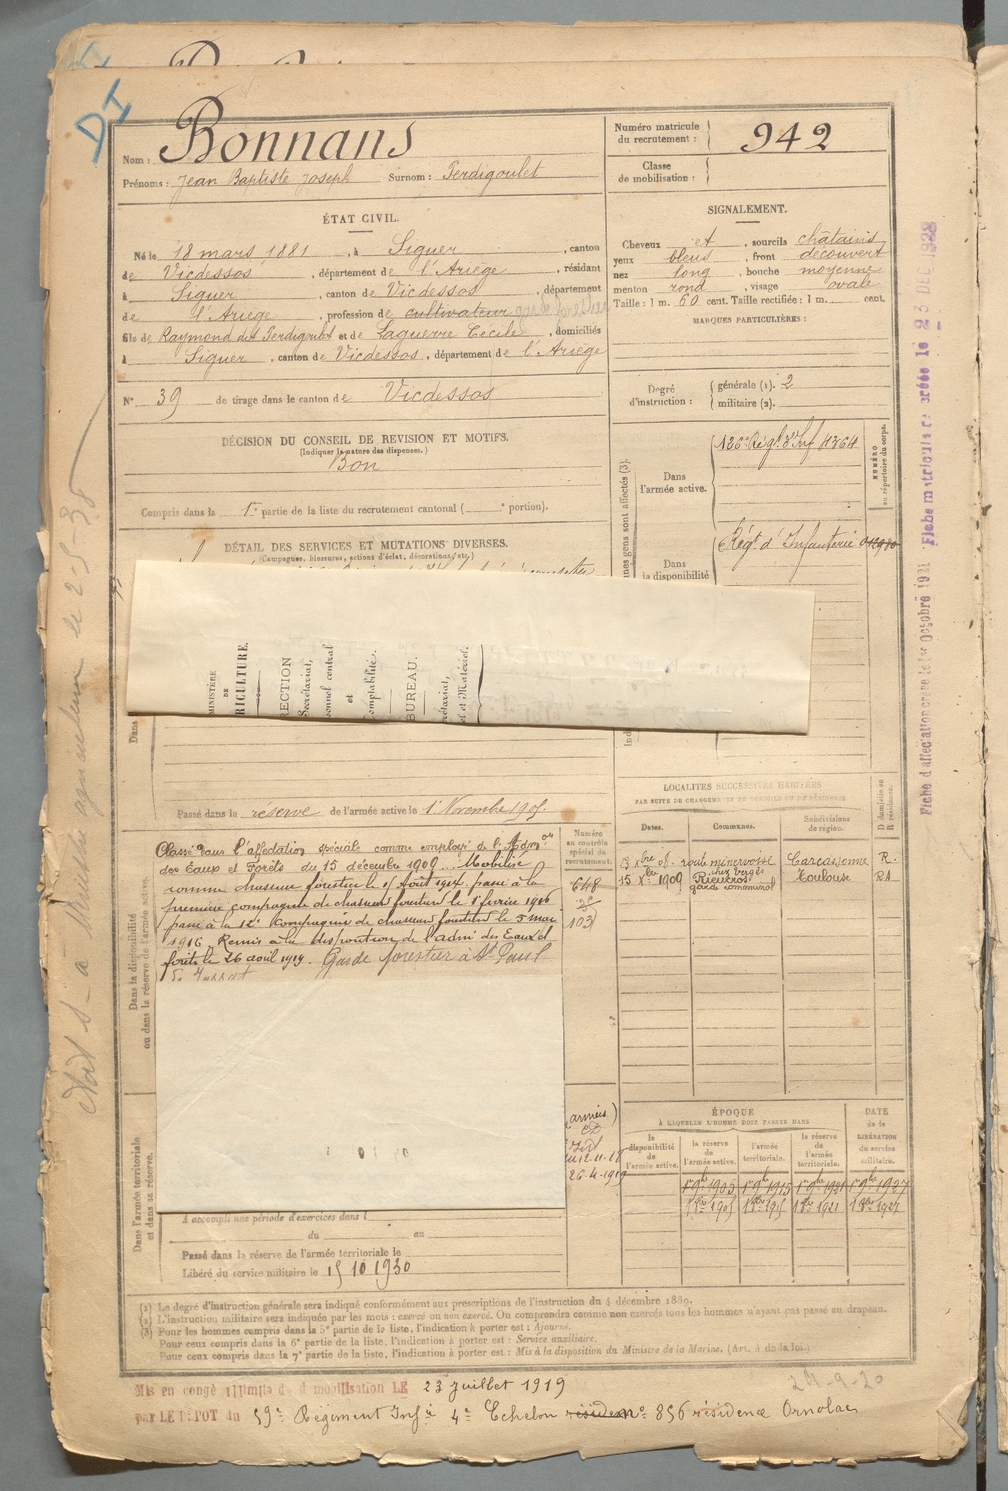 DI
Nom : Bonnans
Prénoms : Jean Baptiste Joseph Surnom : Perdigoulet
Numéro matricule du recrutement : 942
Classe de mobilisation :
ÉTAT CIVIL.
Né le 18 mars 1881, à Siguer, canton
de Vicdessos, département de l'Ariège, résidant
à Siguer, canton de Vicdessos, département
de l'Ariège, profession de cultivateur
fils de Raymond dit Perdigoulet et de Laguerre Cécile, domiciliés
à Siguer, canton de Vicdessos, département de l'Ariège
N° 39 de tirage dans le canton de Vicdessos
SIGNALEMENT.
Cheveux et, sourcils châtains
yeux bleus, front découvert
nez long, bouche moyenne
menton rond, visage ovale
Taille : 1 m. 60 cent. Taille rectifiée : 1 m. cent.
MARQUES PARTICULIÈRES :
Degré d'instruction : générale (1). 2
militaire (2).
DÉCISION DU CONSEIL DE REVISION ET MOTIFS.
(Indiquer la nature des dispenses.)
Bon
Compris dans la 1re partie de la liste du recrutement cantonal ( e portion).
DÉTAIL DES SERVICES ET MUTATIONS DIVERSES.
(Campagnes, blessures, actions d'éclat, décorations, etc.)
Dans l'armée active.
126e Régt d'Inf
NUMÉRO au répertoire du corps.
nes gens sont affectés (3).
Dans la disponibilité
Régt d'Infanterie
MINISTÈRE
DE
RICULTURE.
RECTION
Secrétariat,
onnel central
et
omptabilité.
BUREAU.
crétariat,
el et Matériel.
Dans
Passé dans la réserve de l'armée active le 1er Novembre 1905
Dans la disponibilité ou dans la réserve de l'armée active.
Classé dans l'affectation spéciale comme employé de l'Admon
des Eaux et Forêts du 15 décembre 1909. Mobilisé
comme chasseur forestier le 15 Août 1914 passé à la
première compagnie de chasseurs forestiers le 8 fevrier 1916
passé à la 12e compagnie de chasseurs forestiers le 5 mai
1916. Remis à la disposition de l'admi des Eaux et
forêts le 26 août 1919. Garde forestier à St Paul
Numéro au contrôle spécial du recrutement.
648
103
LOCALITÉS SUCCESSIVES HABITÉES
PAR SUITE DE CHANGEMENTS DE DOMICILE OU DE RÉSIDENCE
Dates. Communes. Subdivisions de région. D domicile ou R résidence.
route minervoise Carcassonne R.
chez Vergès
15 Xbre 1909 Rieucros Toulouse RA
garde communal
ÉPOQUE
À LAQUELLE L'HOMME DOIT PASSER DANS
la disponibilité de l'armée active. la réserve de l'armée active. l'armée territoriale. la réserve de l'armée territoriale.
DATE de la LIBÉRATION du service militaire.
1 9bre 1905 1 9bre 1915 1 9bre 1921 1 9bre 1927
1 8bre 1905 1 8bre 1915 1 8bre 1921 1 8bre 1927
(armées)
12.11.18
26.4.1919
Dans l'armée territoriale et dans sa réserve.
A accompli une période d'exercices dans l
du au
Passé dans la réserve de l'armée territoriale le
Libéré du service militaire le 15 10 1930
(1) Le degré d'instruction générale sera indiqué conformément aux prescriptions de l'instruction du 4 décembre 1889.
(2) L'instruction militaire sera indiquée par les mots : exercé ou non exercé. On comprendra comme non exercés tous les hommes n'ayant pas passé au drapeau.
(3) Pour les hommes compris dans la 5e partie de la liste, l'indication à porter est : Ajourné.
Pour ceux compris dans la 6e partie de la liste, l'indication à porter est : Service auxiliaire.
Pour ceux compris dans la 7e partie de la liste, l'indication à porter est : Mis à la disposition du Ministre de la Marine. (Art. 4 de la loi.)
24-9-20
Mis en congé illimité de démobilisation LE 23 juillet 1919
par LE DEPOT du 59e Régiment Infie 4e Echelon no 856 résidence Ornolac